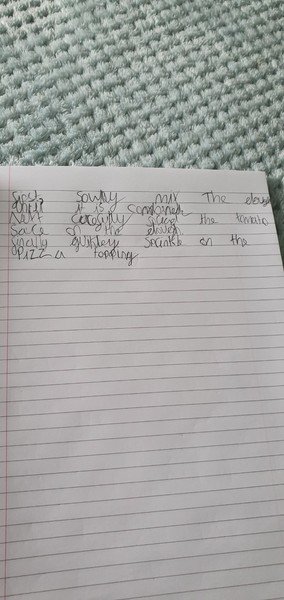 First, sowlly mix The dow
until it is combined
Next carefully spread the tomato
Sace on the dough.
finally quikley Sprinkle on the
PIZZa topping